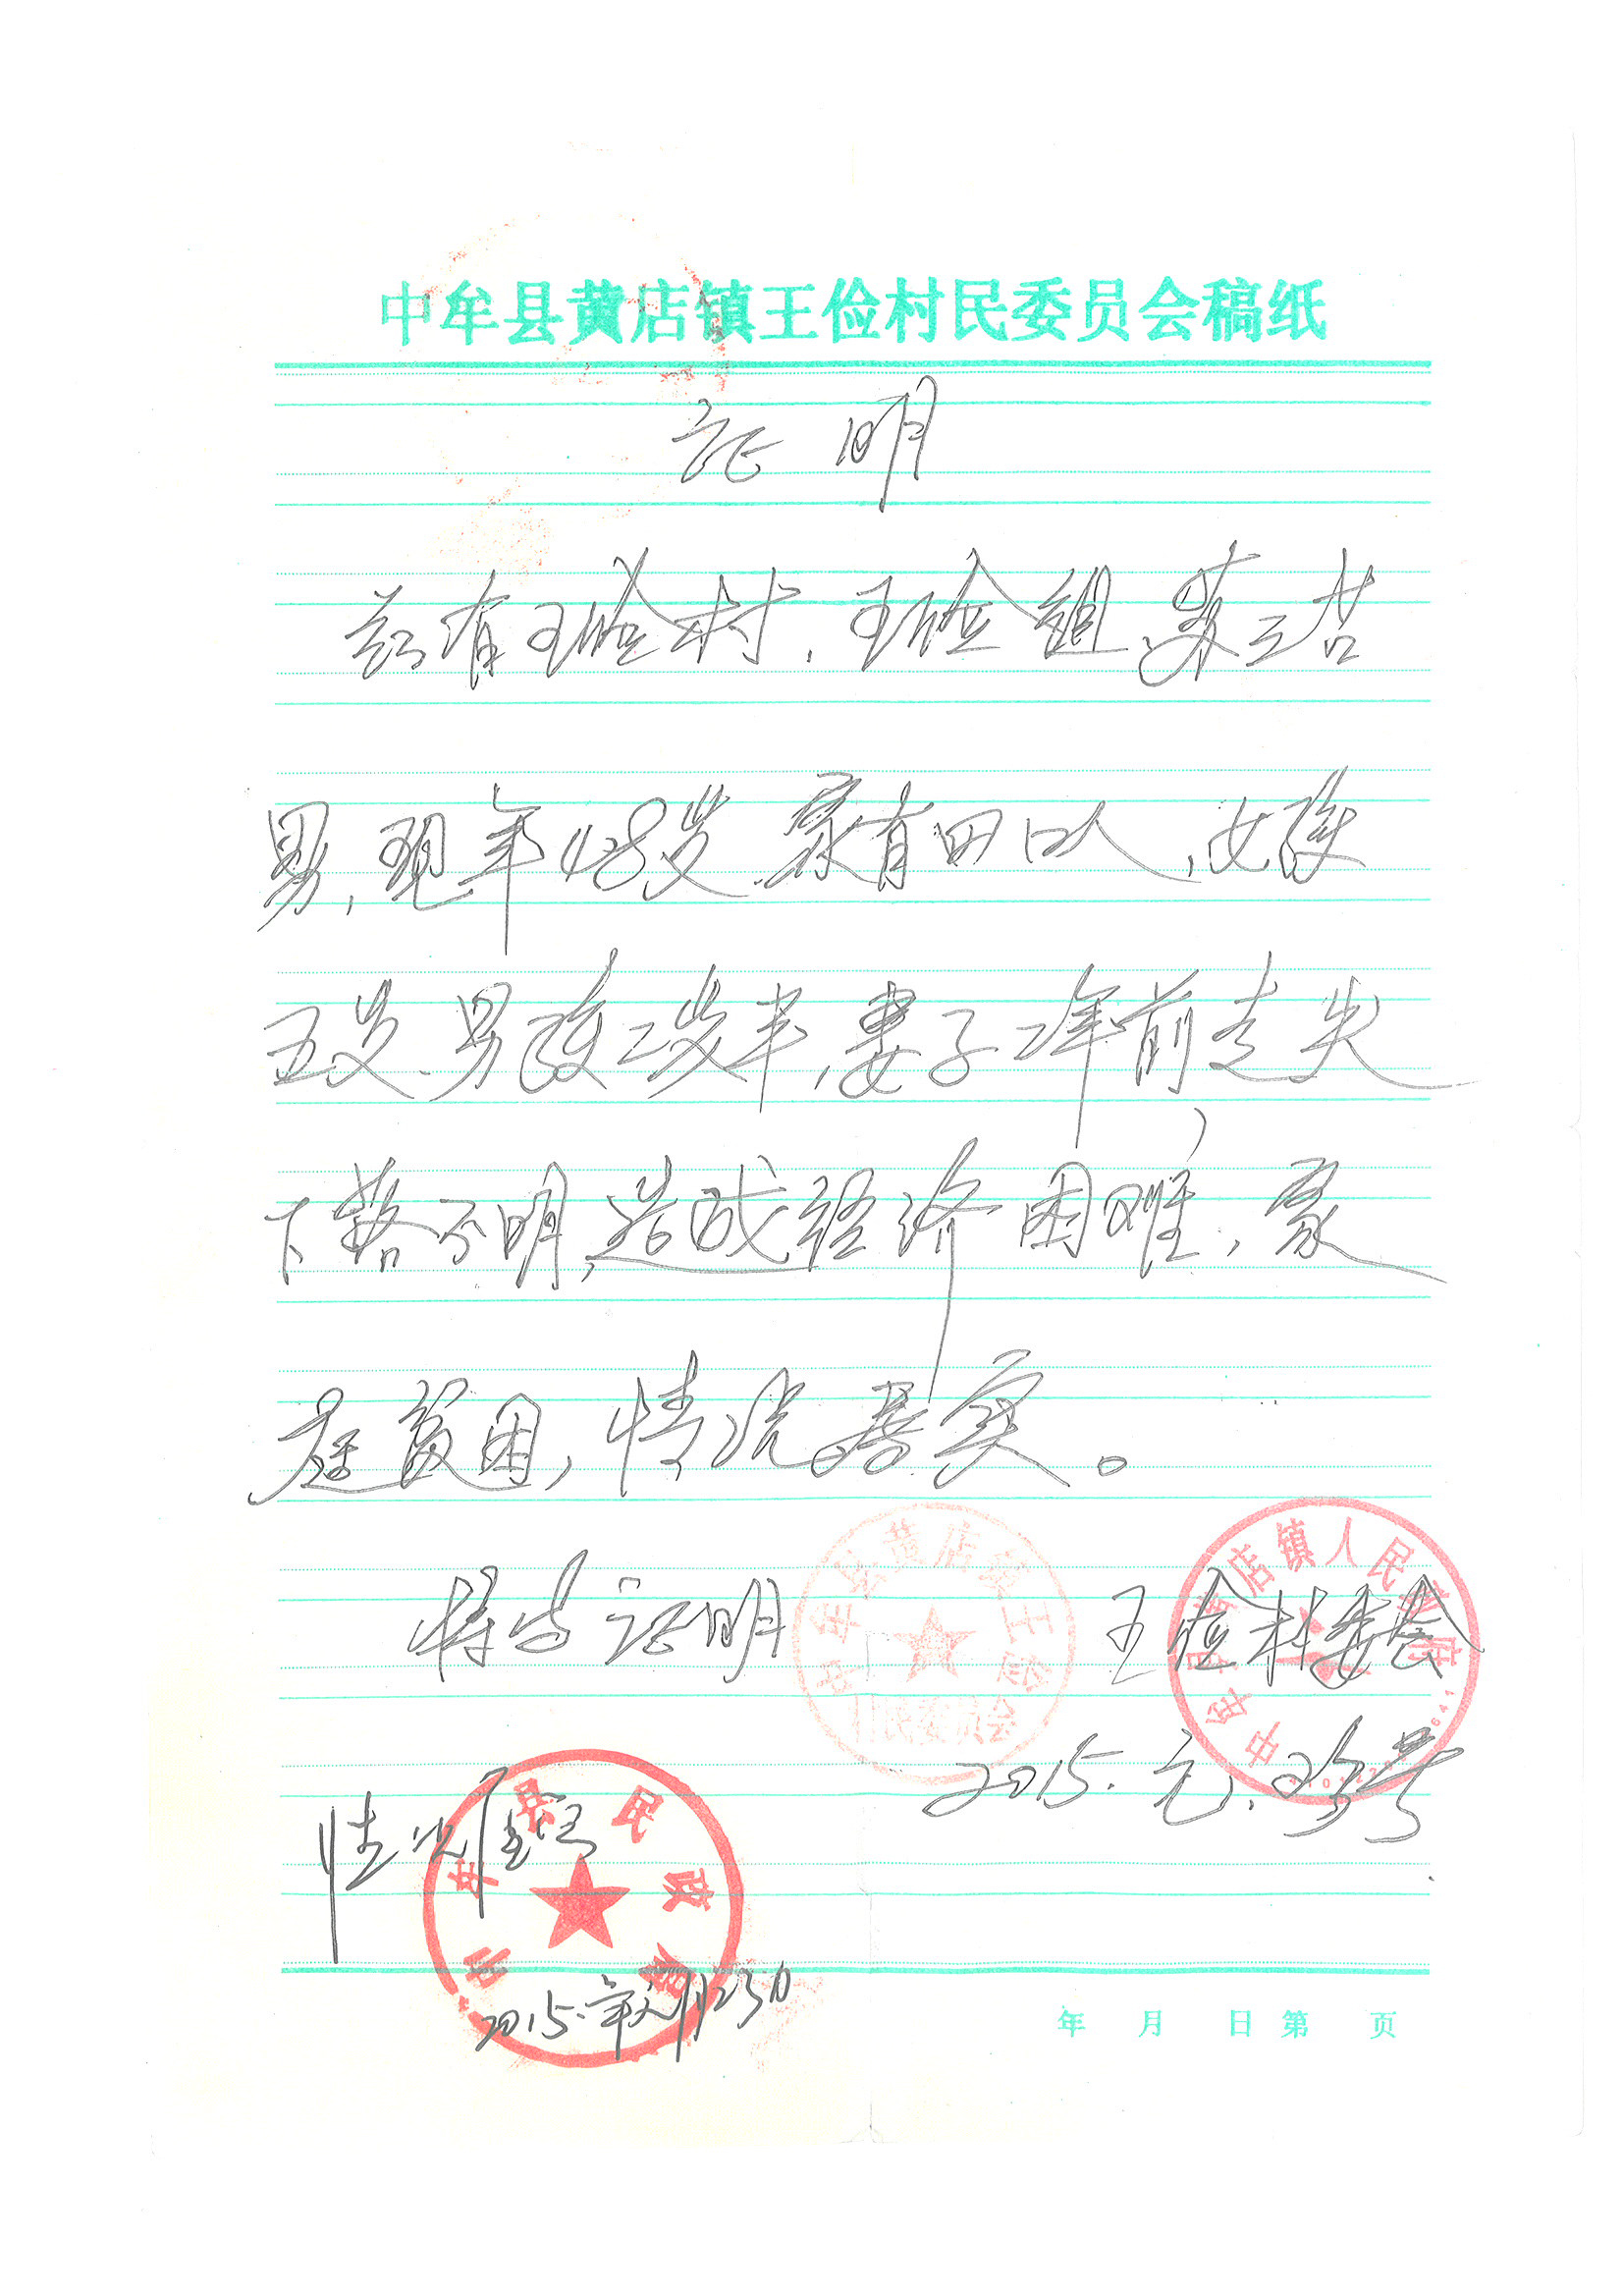 中牟县黄店镇王俭村民委员会稿纸
证 明
兹有王俭村，王俭组，苏三岩
男，现年48岁，家有四口人，女孩
五岁，男孩二岁半，妻子二年前走失
下落不明，造成经济困难，家
庭贫困，情况属实。
特此证明
王俭村委会
2015.元.
情况属实
2015.年元月23日
中牟县黄店镇王俭
村民委员会
中牟县黄店镇人民政府
中牟县民政局
年 月 日 第 页